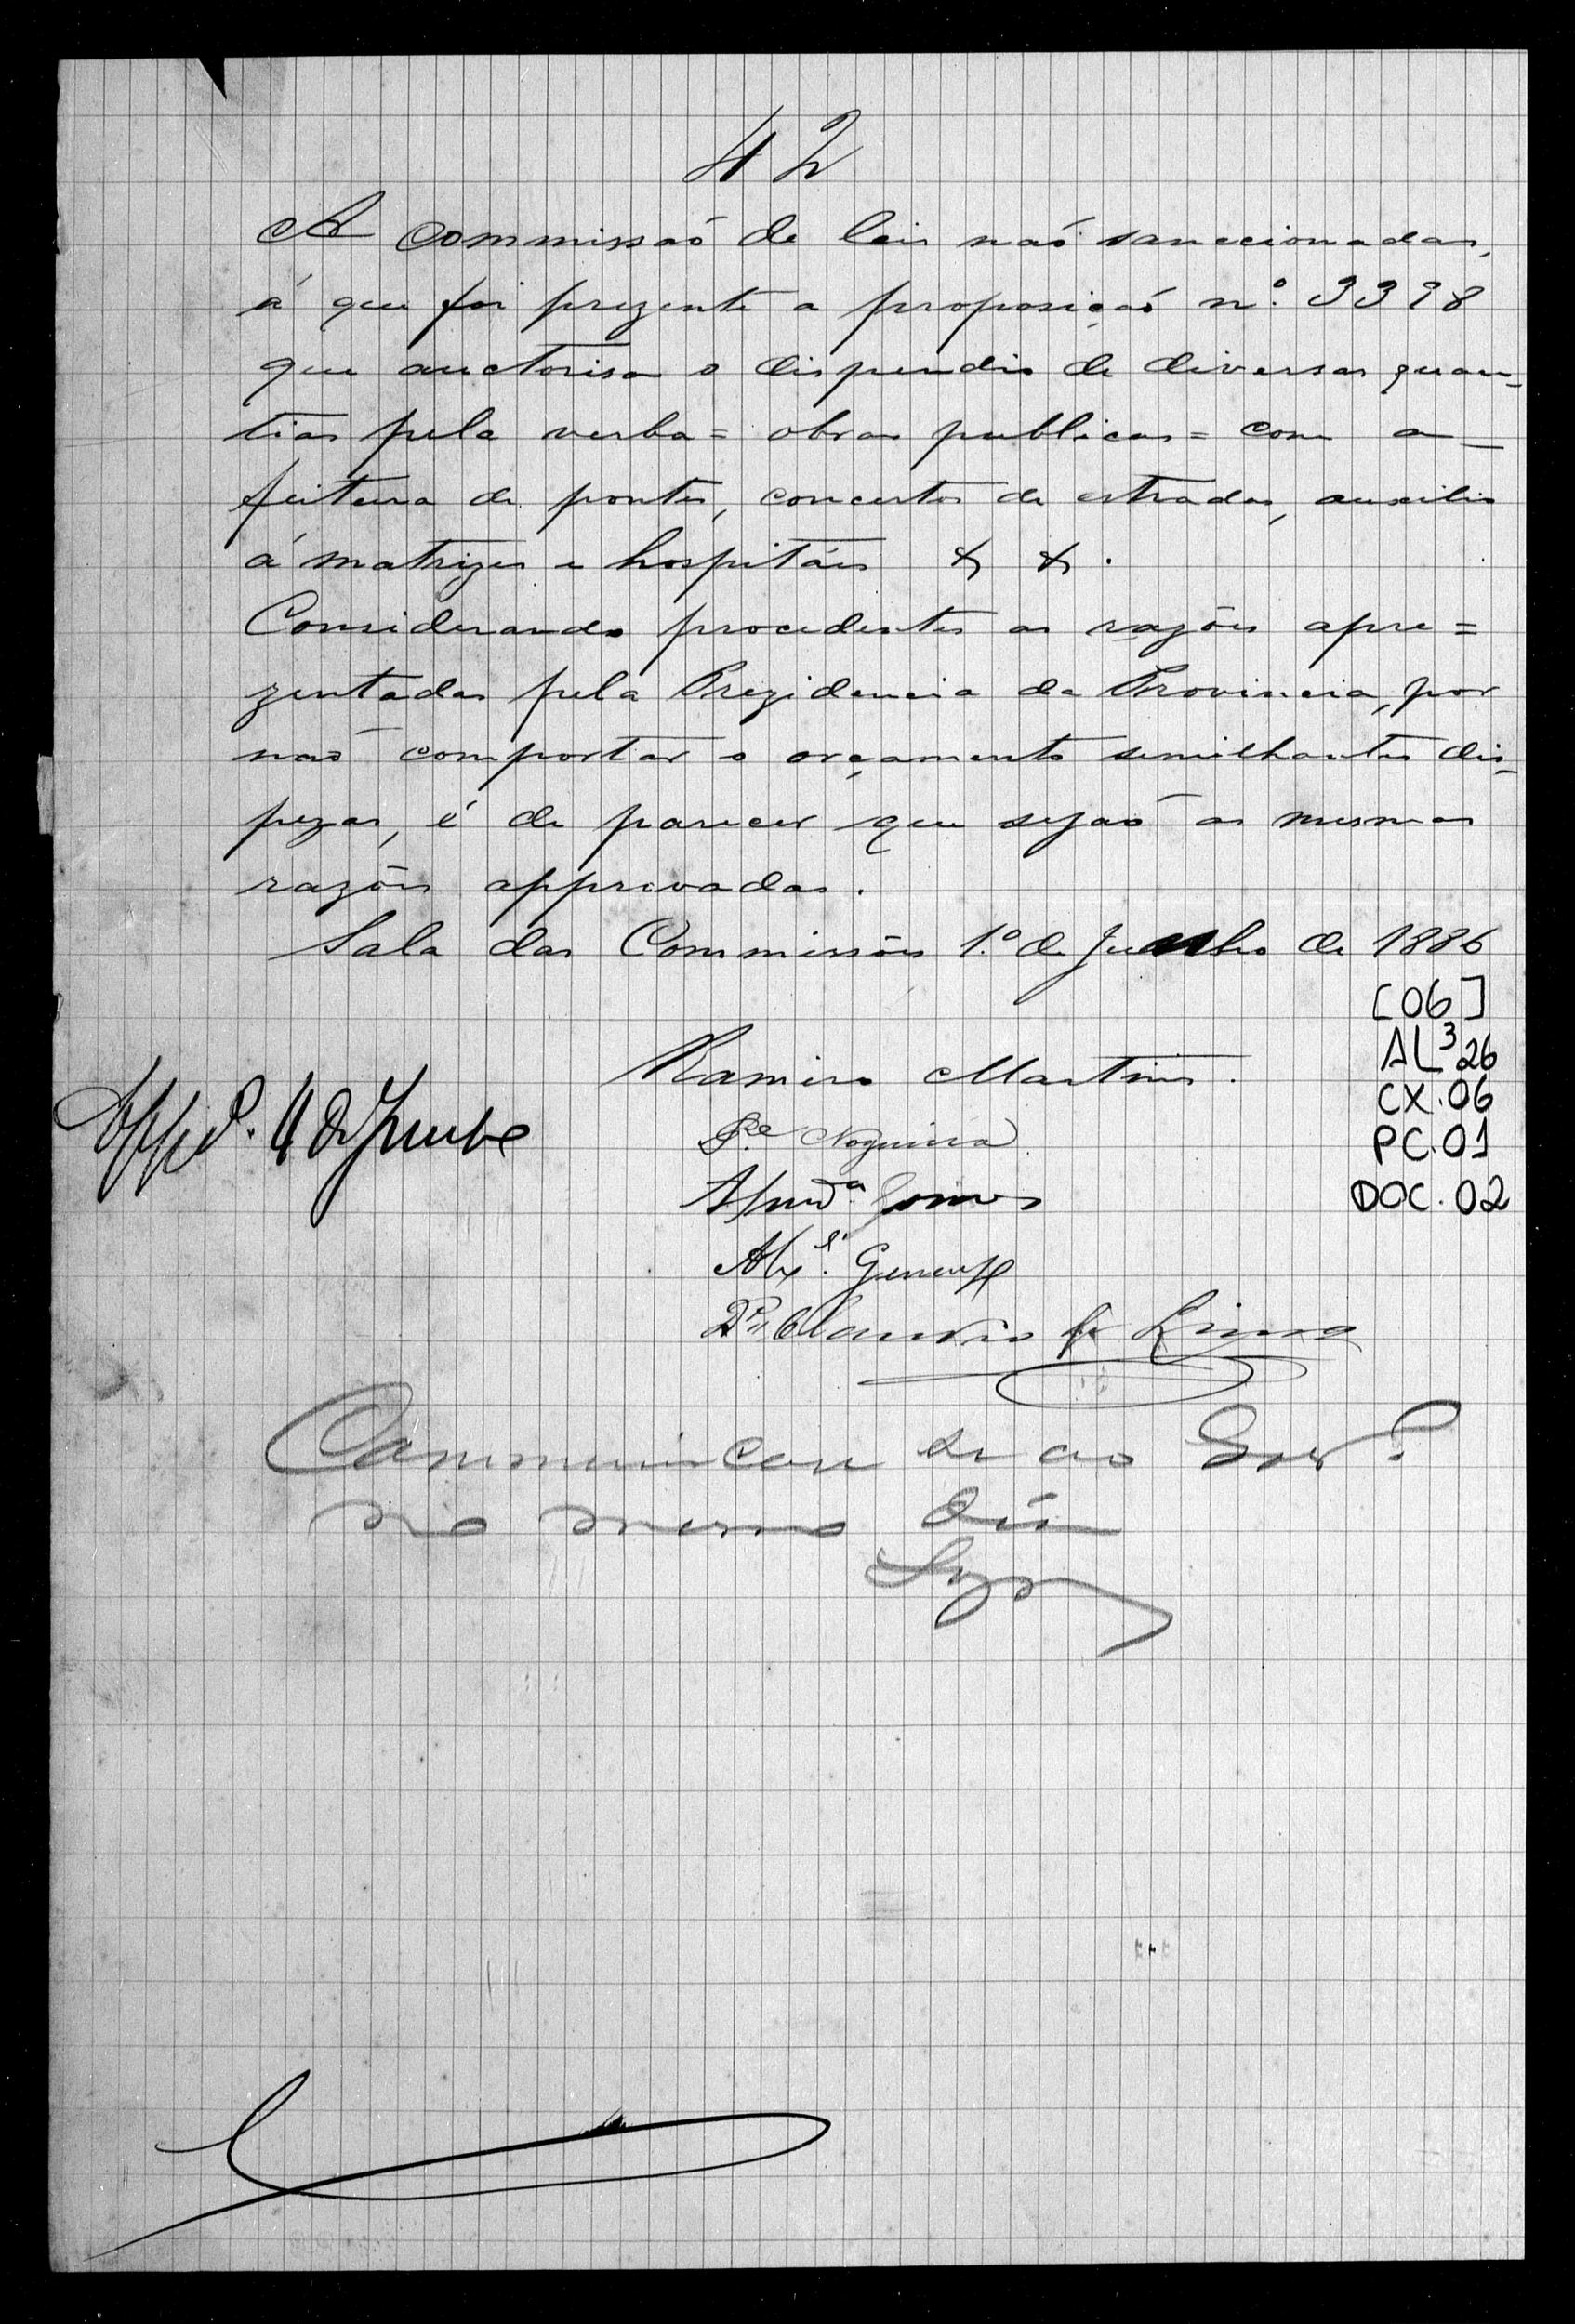 42
A Commissaõ de leis naõ sanccionadas,
á que foi prezente a proposiçaõ nº. 3398
que auctorisa o dispendio de diversas quan-
tias pela verba = obras publicas = com a
feitura de pontes, concertos de estradas, auxilio
á matrizes e hospitáes & &.
Considerando procedentes as razões apre=
zentadas pela Prezidencia da Provincia, por
naõ comportar o orçamento similhantes dis-
pezas, é de parecer que sejaõ as mesmas
razões approvadas.
Sala das Commissões 1.º de Junho de 1886
[06]
AL³26
CX.06
PC.01
DOC.02
Ramiro Martins.
App. 4 de Junho
P.e Nogueira
Gomes
P.e Claudio de Lima
Communicou se ao Gov.
no mesmo dia